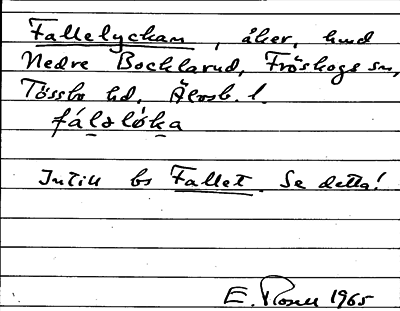 Fallelyckan, åker, hmd
Nedre Bocklarud, Fröskogs sn,
Tössbo hd, Älvsb. l.
fálələka
Intill bs Fallet. Se detta!
E. Rosell 1965